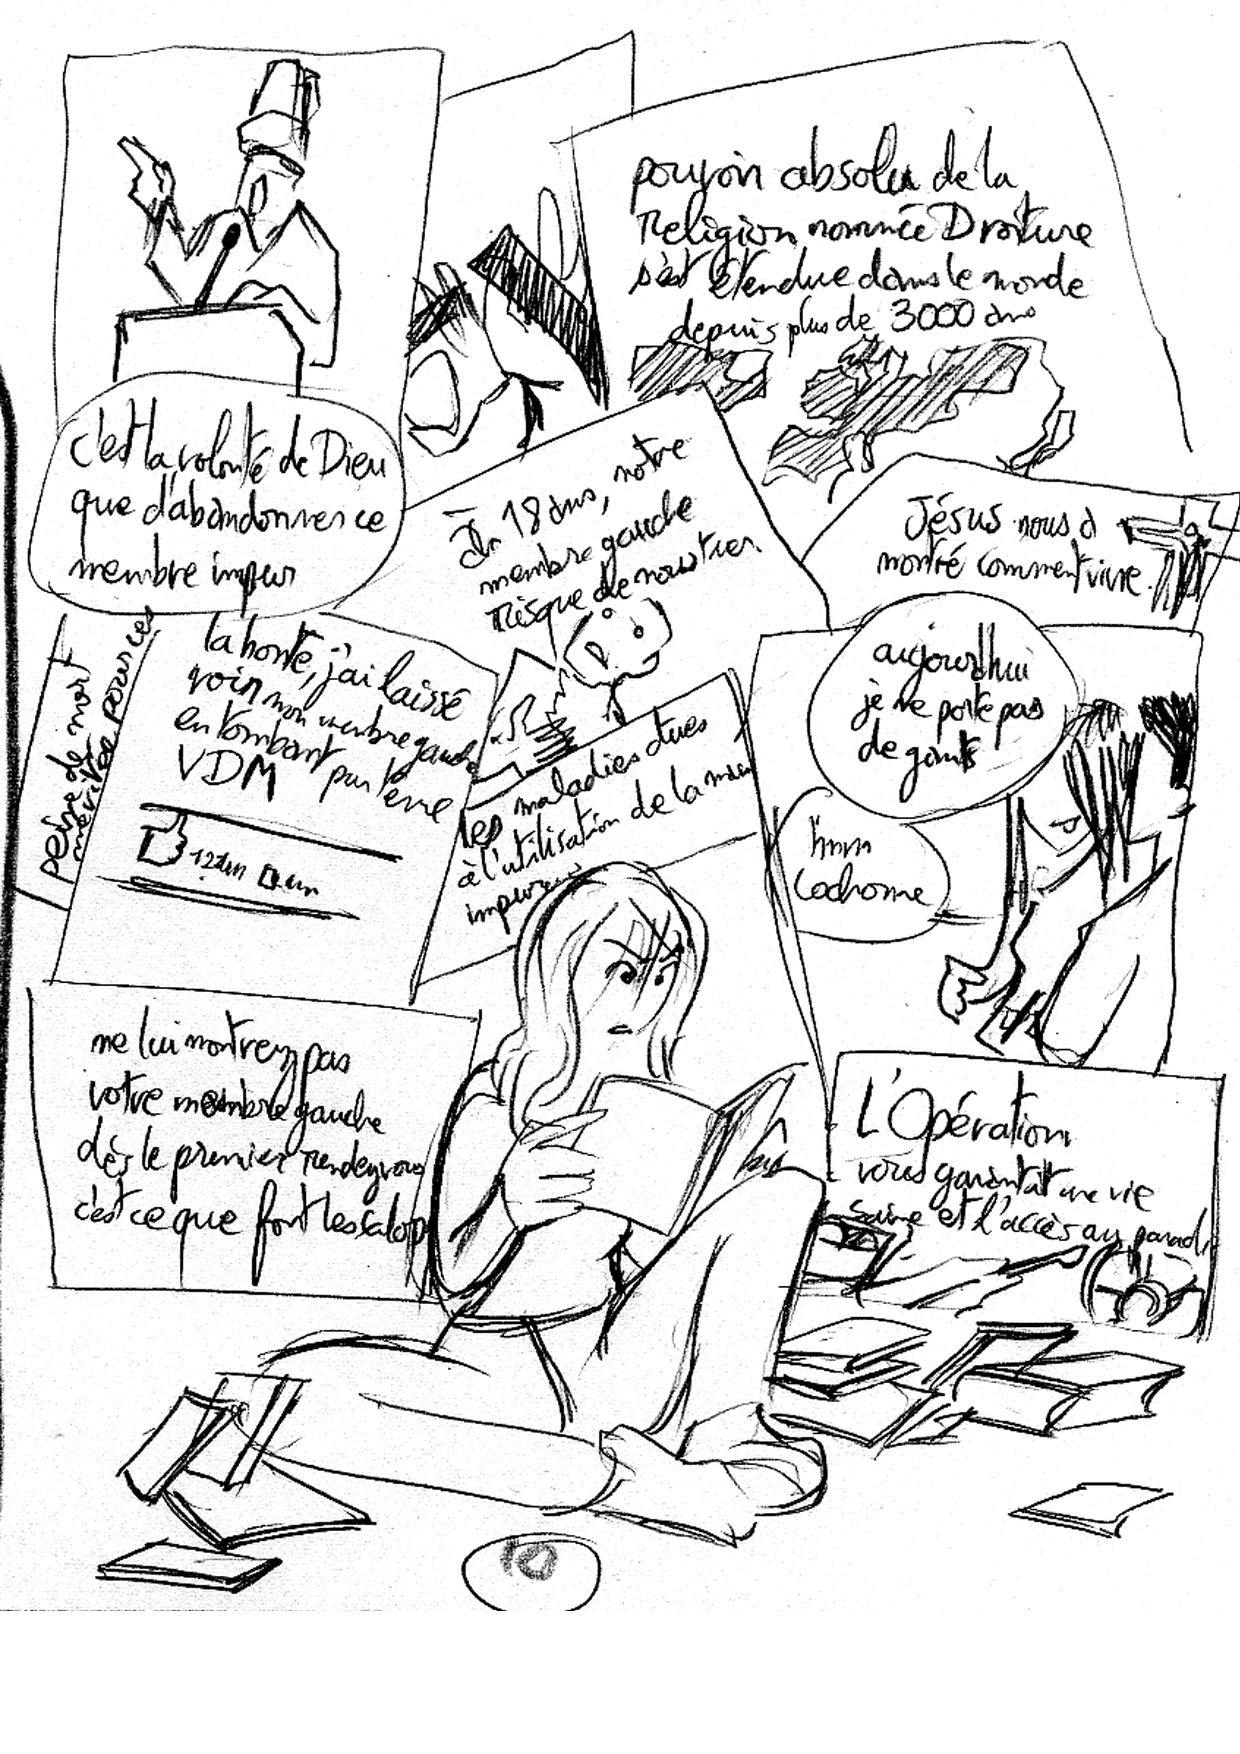 c'est la volonté de Dieu
que d'abandonner ce
membre impur
pouvoir absolu de la
Religion nommée Droiture
s'est étendue dans le monde
depuis plus de 3000 ans
À 18 ans, notre
membre gauche
risque de nous tuer.
Jésus nous a
montré comment vivre.
peine de mort
méritée pour ces
la honte, j'ai laissé
voir mon membre gauche
en tombant par terre
VDM
les maladies dues
à l'utilisation de la main
impure...
aujourd'hui
je ne porte pas
de gants
hmm
cochonne
ne lui montrez pas
votre membre gauche
dès le premier rendez vous
c'est ce que font les salop
L'Opération
vous garantit une vie
saine et l'accès au paradis
10